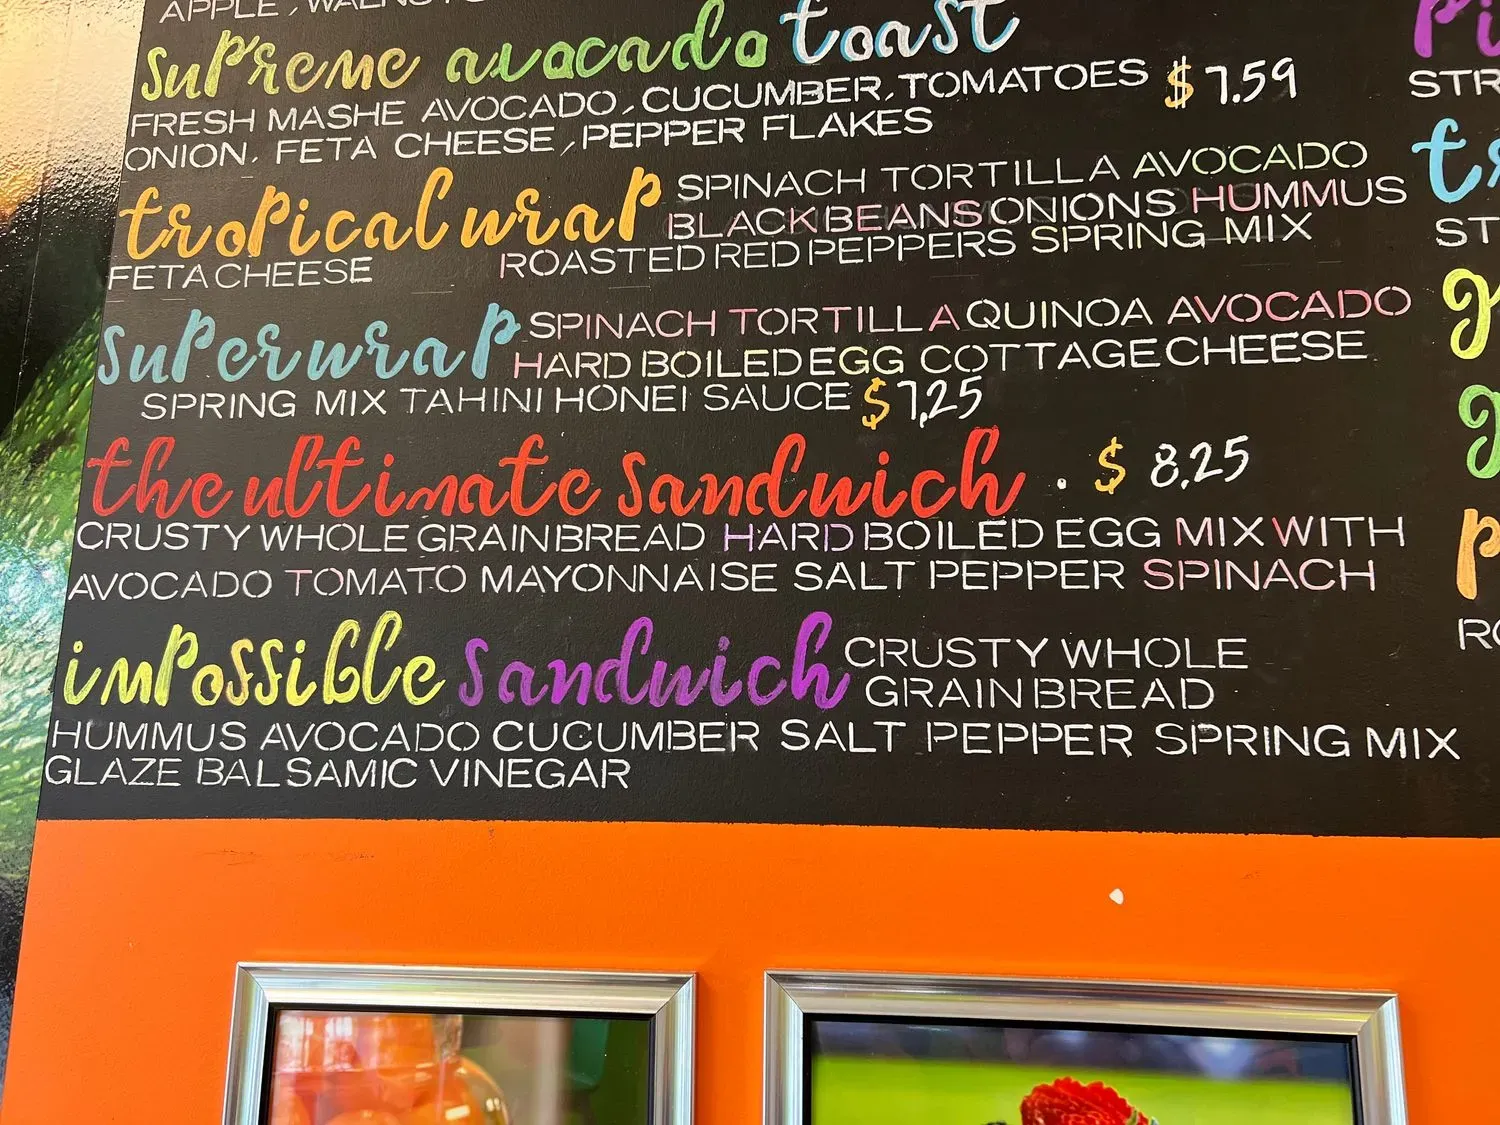 APPLE, WALNUTS
supreme avocado toast
FRESH MASHE AVOCADO, CUCUMBER, TOMATOES $7.59
ONION, FETA CHEESE, PEPPER FLAKES
tropical wrap SPINACH TORTILLA AVOCADO
BLACK BEANS ONIONS HUMMUS
FETA CHEESE ROASTED RED PEPPERS SPRING MIX
superwrap SPINACH TORTILLA QUINOA AVOCADO
HARD BOILED EGG COTTAGE CHEESE
SPRING MIX TAHINI HONEI SAUCE $7,25
the ultimate sandwich . $ 8,25
CRUSTY WHOLE GRAIN BREAD HARD BOILED EGG MIX WITH
AVOCADO TOMATO MAYONNAISE SALT PEPPER SPINACH
impossible sandwich CRUSTY WHOLE
GRAIN BREAD
HUMMUS AVOCADO CUCUMBER SALT PEPPER SPRING MIX
GLAZE BALSAMIC VINEGAR